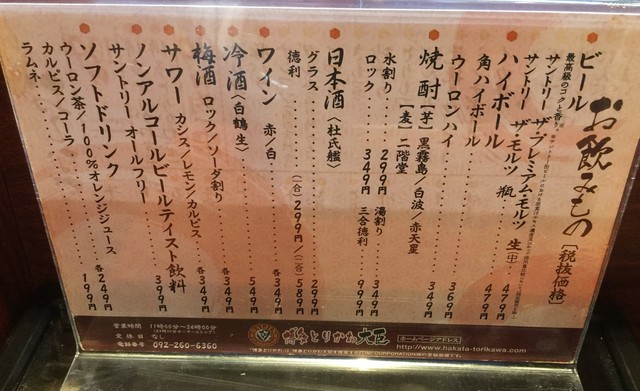 お飲みもの [税抜価格]
ビール
最高級のコクと香り。
サントリー ザ・プレミアム・モルツ 生(中) 479円
サントリー ザ・モルツ 瓶 479円
ハイボール
角ハイボール 369円
ウーロンハイ 349円
焼酎 【芋】黒霧島/白波/赤天星
【麦】二階堂
水割り 299円 湯割り 349円
ロック 349円 三合徳利 999円
日本酒〈杜氏艦〉
グラス 299円
徳利 (一合)299円/(二合)589円
ワイン 赤/白 549円
冷酒〈白鶴 生〉 349円
梅酒 ロック/ソーダ割り 各349円
サワー カシス/レモン/カルピス 各349円
ノンアルコールビールテイスト飲料
サントリー オールフリー 349円
ソフトドリンク
ウーロン茶/100%オレンジジュース
カルピス/コーラ 各249円
ラムネ 199円
営業時間 11時00分〜24時00分
定休日 なし
電話番号 092-260-6360
博多とりかわ大臣
ホームページアドレス
http://www.hakata-torikawa.com